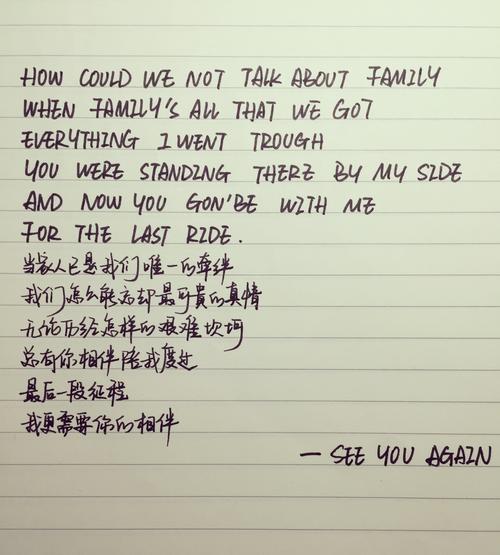 HOW COULD WE NOT TALK ABOUT FAMILY
WHEN FAMILY'S ALL THAT WE GOT
EVERYTHING I WENT TROUGH
YOU WERE STANDING THERE BY MY SIDE
AND NOW YOU GON'BE WITH ME
FOR THE LAST RIDE.
当家人已是我们唯一的牵绊
我们怎么能忘却最可贵的真情
无论历经怎样的艰难坎坷
总有你相伴陪我度过
最后一段征程
我更需要你的相伴
— SEE YOU AGAIN